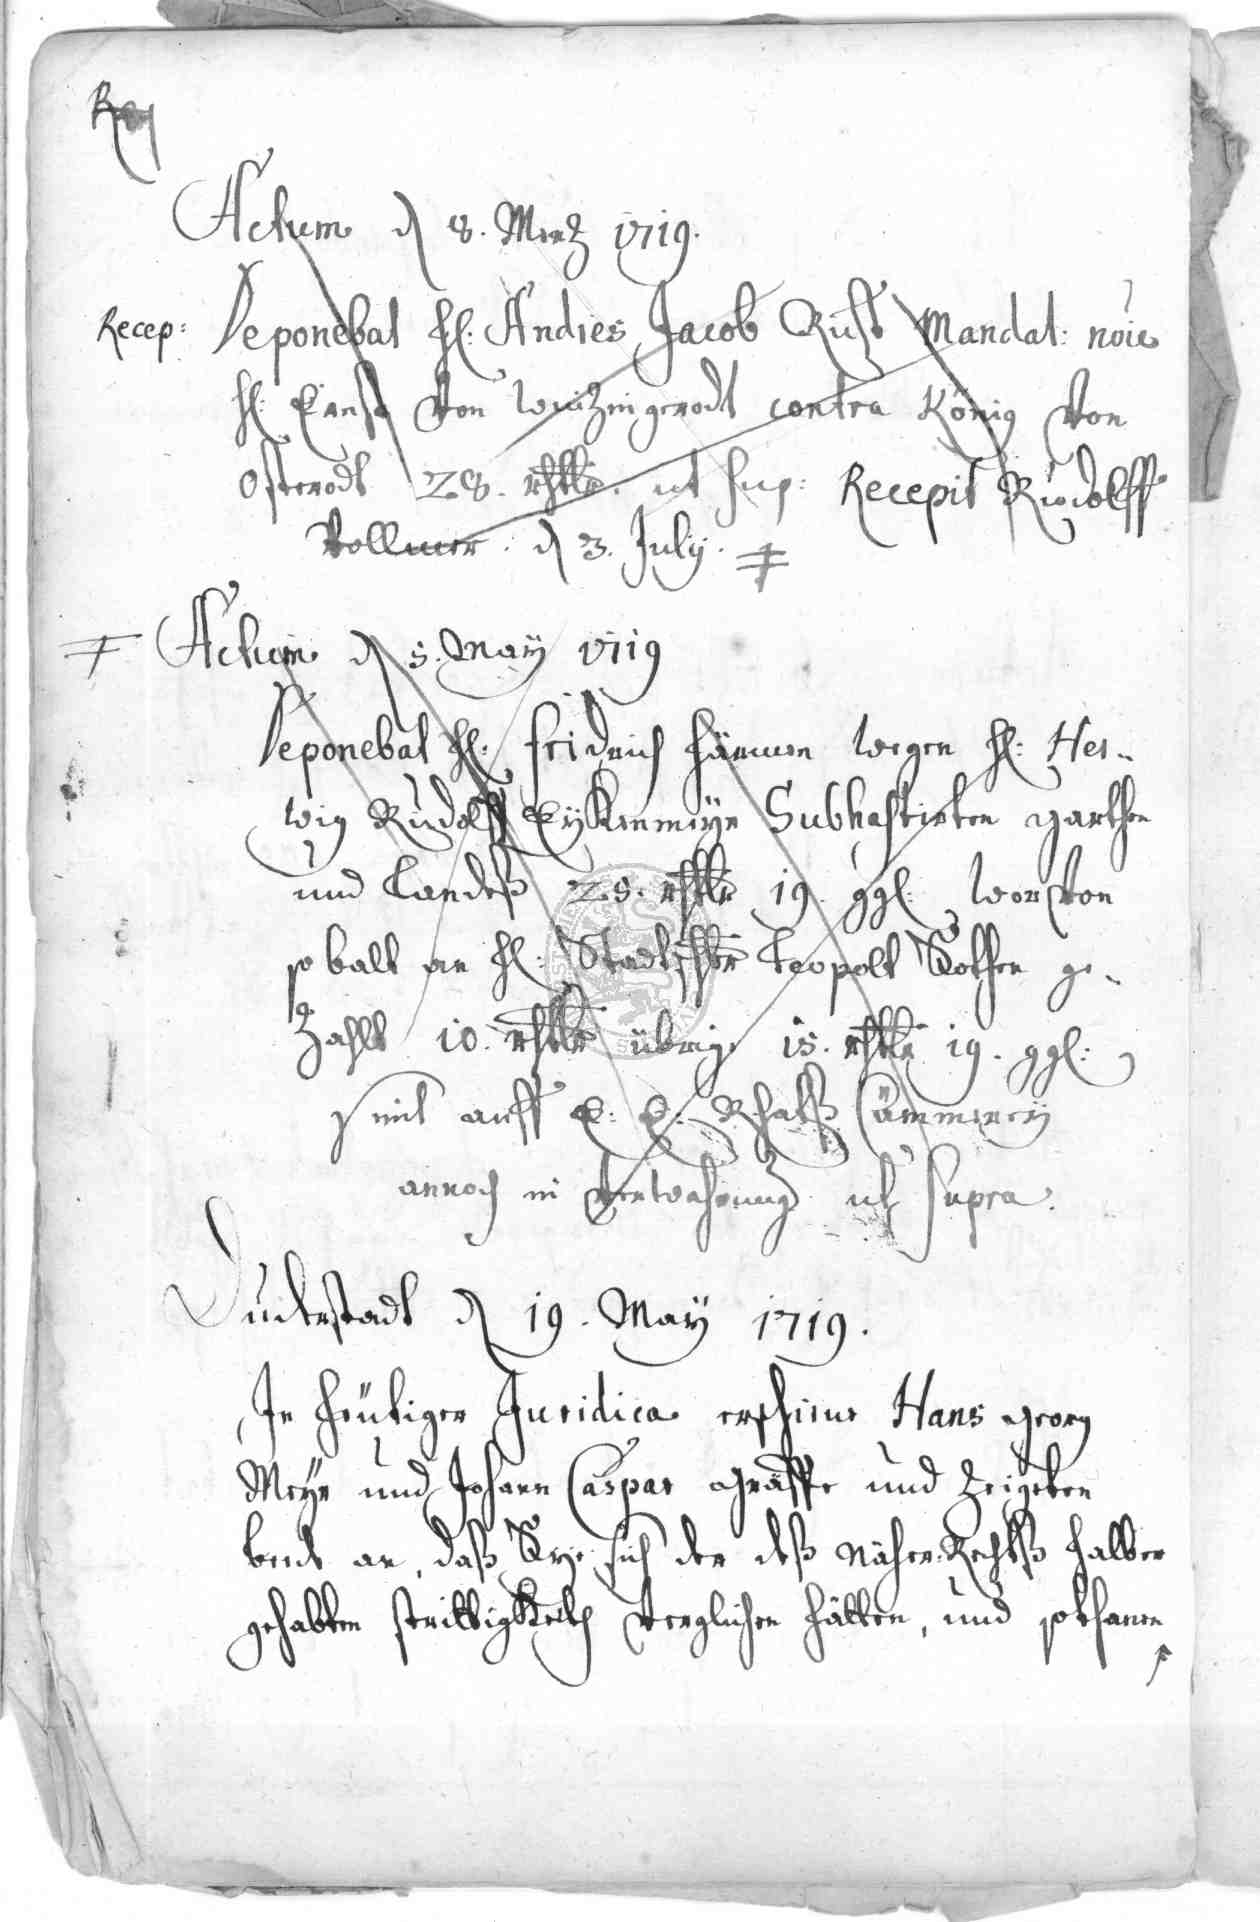 Actum d 8. Mertz 1719.
Recep: Deponebat H: Andres Jacob Rust Mandat: nõie
H: Ernst von Wintzingerodt contra König von
Osterodt 28. rthlr. ut sup: Recepit Rudolff
Vollmer. d 3. July.
Actum d 5. May 1719
Deponebat H: Fridrich Härmen wegen H: Her-
wig Rudolff Eykenmeyer Subhastirten garthen
und Landeß 25. rthlr 19 ggl: worvon
so balt an H: Stadtschr Leopolt Kothen ge-
zahlt 10. rthlr übrige 15. rthlr 19. ggl:
seint auff E: E: Rhatß Cämmerey
annoch in verwahrung ut supra.
Duderstadt d 19. May 1719.
In heütiger Juridica erschiene Hans georg
Meyer und Johann Caspar gräffe und zeigeten
beide an, daß Sye sich der deß näher-Rechtß halber
gehabten strittigkeith verglichen hätten, und sothanen